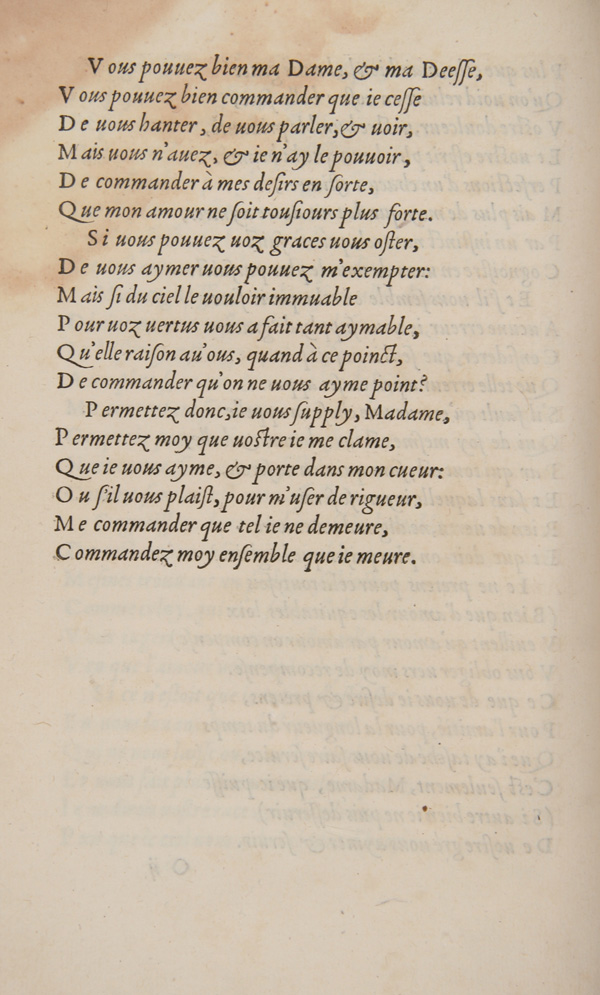 Vous pouuez bien ma Dame, & ma Deesse,
Vous pouuez bien commander que ie cesse
De uous hanter, de uous parler, & uoir,
Mais uous n'auez, & ie n'ay le pouuoir,
De commander à mes desirs en sorte,
Que mon amour ne soit tousiours plus forte.
Si uous pouuez uoz graces uous oster,
De uous aymer uous pouuez m'exempter:
Mais si du ciel le uouloir immuable
Pour uoz uertus uous a fait tant aymable,
Qu'elle raison au'ous, quand à ce poinct,
De commander qu'on ne uous ayme point?
Permettez donc, ie uous supply, Madame,
Permettez moy que uostre ie me clame,
Que ie uous ayme, & porte dans mon cueur:
Ou s'il uous plaist, pour m'user de rigueur,
Me commander que tel ie ne demeure,
Commandez moy ensemble que ie meure.